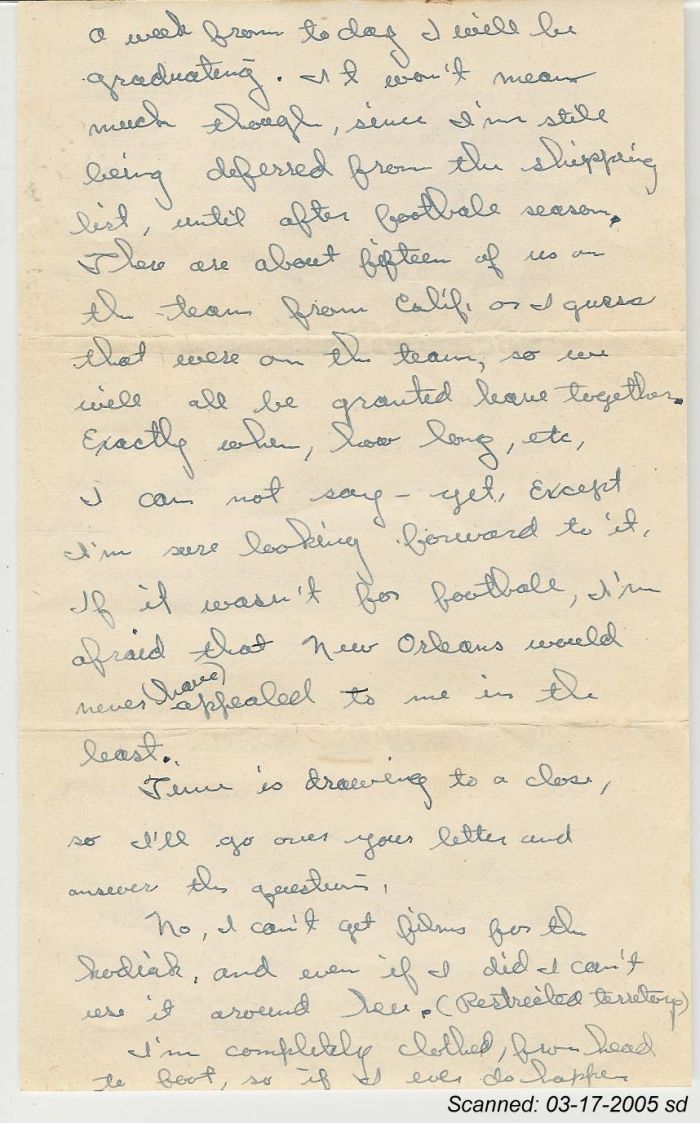 a week from today I will be
graduating. It won't mean
much though, since I'm still
being deferred from the shipping
list, until after football season.
There are about fifteen of us on
the team from Calif. or I guess
that were on the team, so we
will all be granted leave together.
Exactly when, how long, etc,
I can not say - yet, Except
I'm sure looking forward to it.
If it wasn't for football, I'm
afraid that New Orleans would
never (have) appealed to me in the
least.
Time is drawing to a close,
so I'll go over your letter and
answer the questions,
No, I can't get films for the
kodiak, and even if I did I can't
use it around here. (Restricted territory)
I'm completely clothed, from head
to foot, so if I ever do happen
Scanned: 03-17-2005 sd